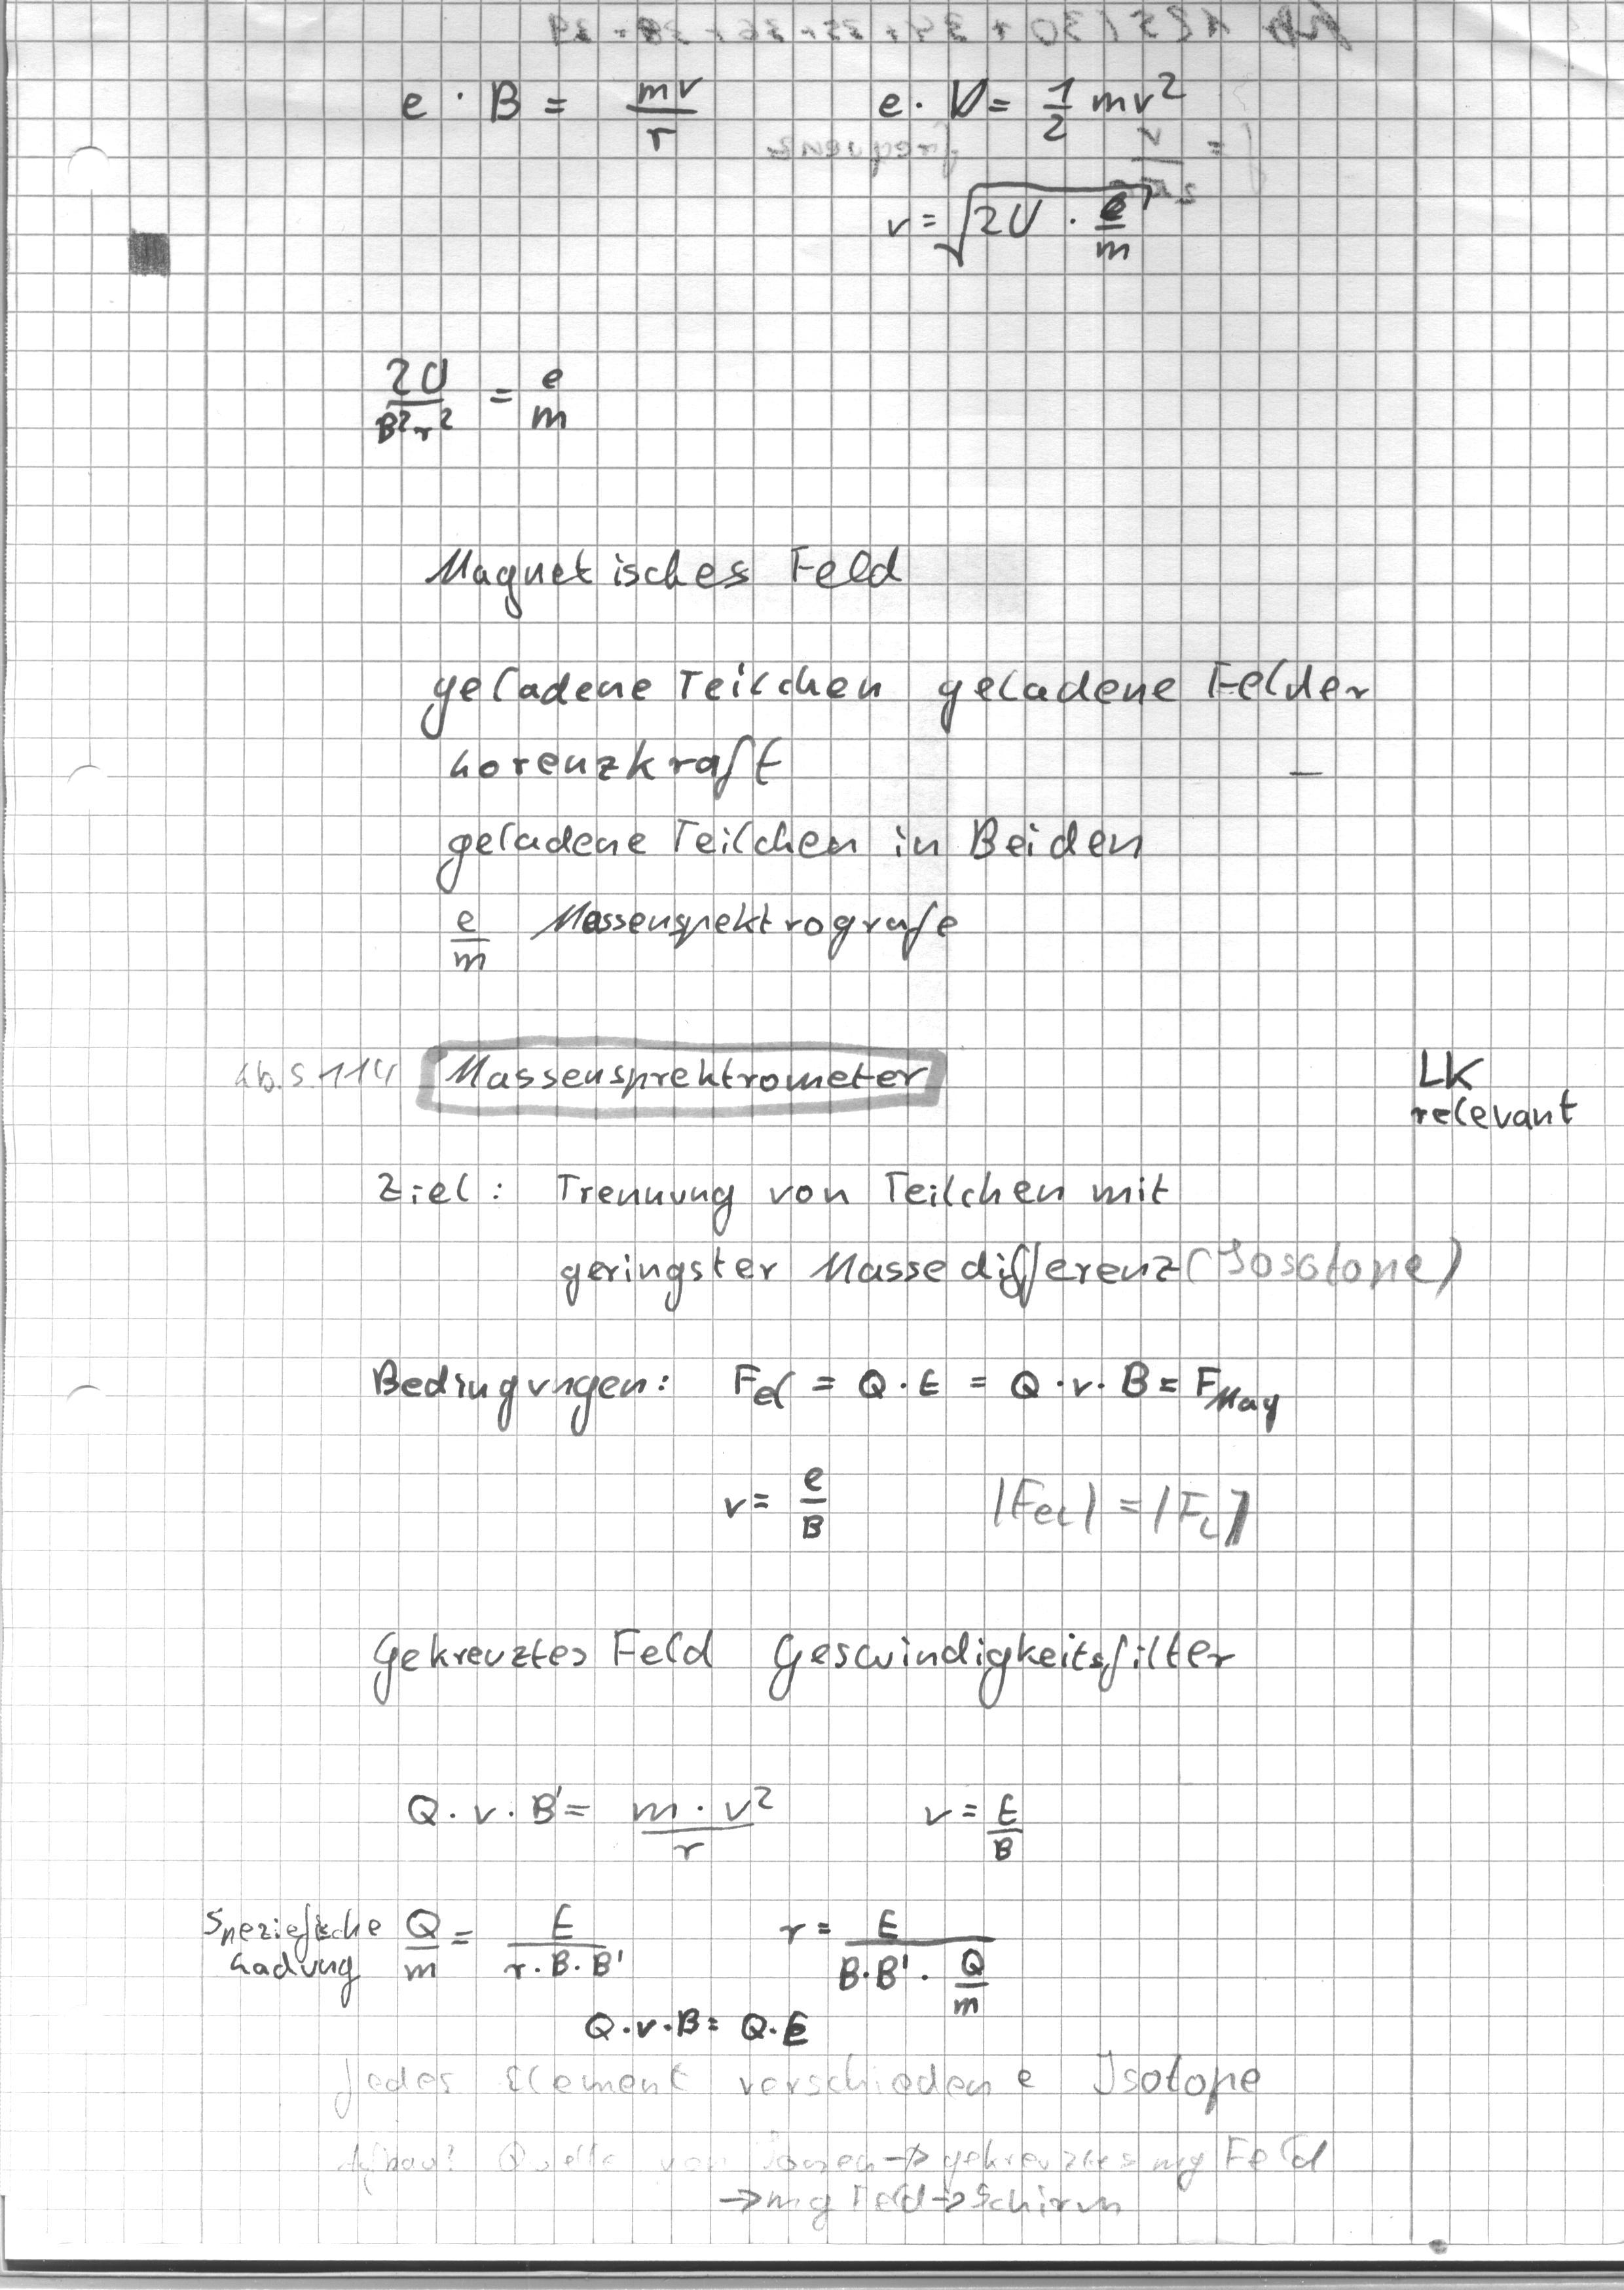 e · B = mv/r    e · U = 1/2 mv²
v = √(2U · e/m)
2U/B²r² = e/m
Magnetisches Feld
geladene Teilchen geladene Felder
Lorenzkraft –
geladene Teilchen in Beiden
e/m Massenspektrografe
Lb. S. 114 Massensprektrometer LK
relevant
Ziel: Trennung von Teilchen mit
geringster Massedifferenz (Isosotope)
Bedingungen: F_el = Q · E = Q · v · B = F_Mag
v = e/B    |F_el| = |F_L|
Gekreuztes Feld Geswindigkeitsfilter
Q · v · B' = m · v²/r    v = E/B
Speziefische Ladung Q/m = E/(r · B · B')    r = E/(B · B' · Q/m)
Q · v · B = Q · E
Jedes Element verschiedene Isotope
Aufbau: Quelle von Ionen → gekreuztes mg Feld
→ mg Feld → Schirm